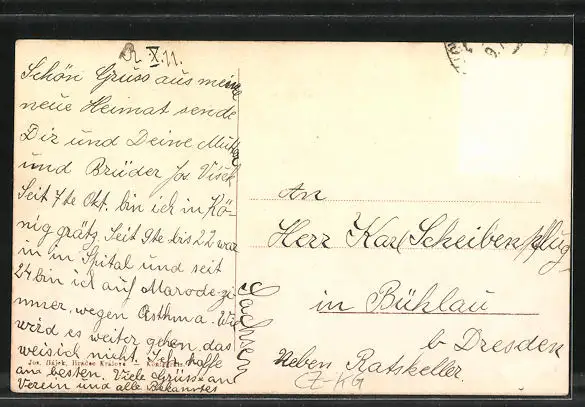 X.11.
Schön Gruss aus meine
neue Heimat sende
Dir und Deine Mutter
und Brüder Jos Višek
Seit 7te Okt. bin ich in Kö-
niggrätz, Seit 9te bis 22 war
in im Spital und seit
24 bin ich auf Marodezi-
mmer, wegen Asthma. Wie
wird es weiter gehen, das
weis ich nicht. Ich hoffe
am besten. Viele Grüsse an
Verein und alle Bekanntes
Jos. Hájek, Hradec Králové
An
Herr Karl Scheibenpflug
in Bühlau
b Dresden
Neben Ratskeller.
Sachsen